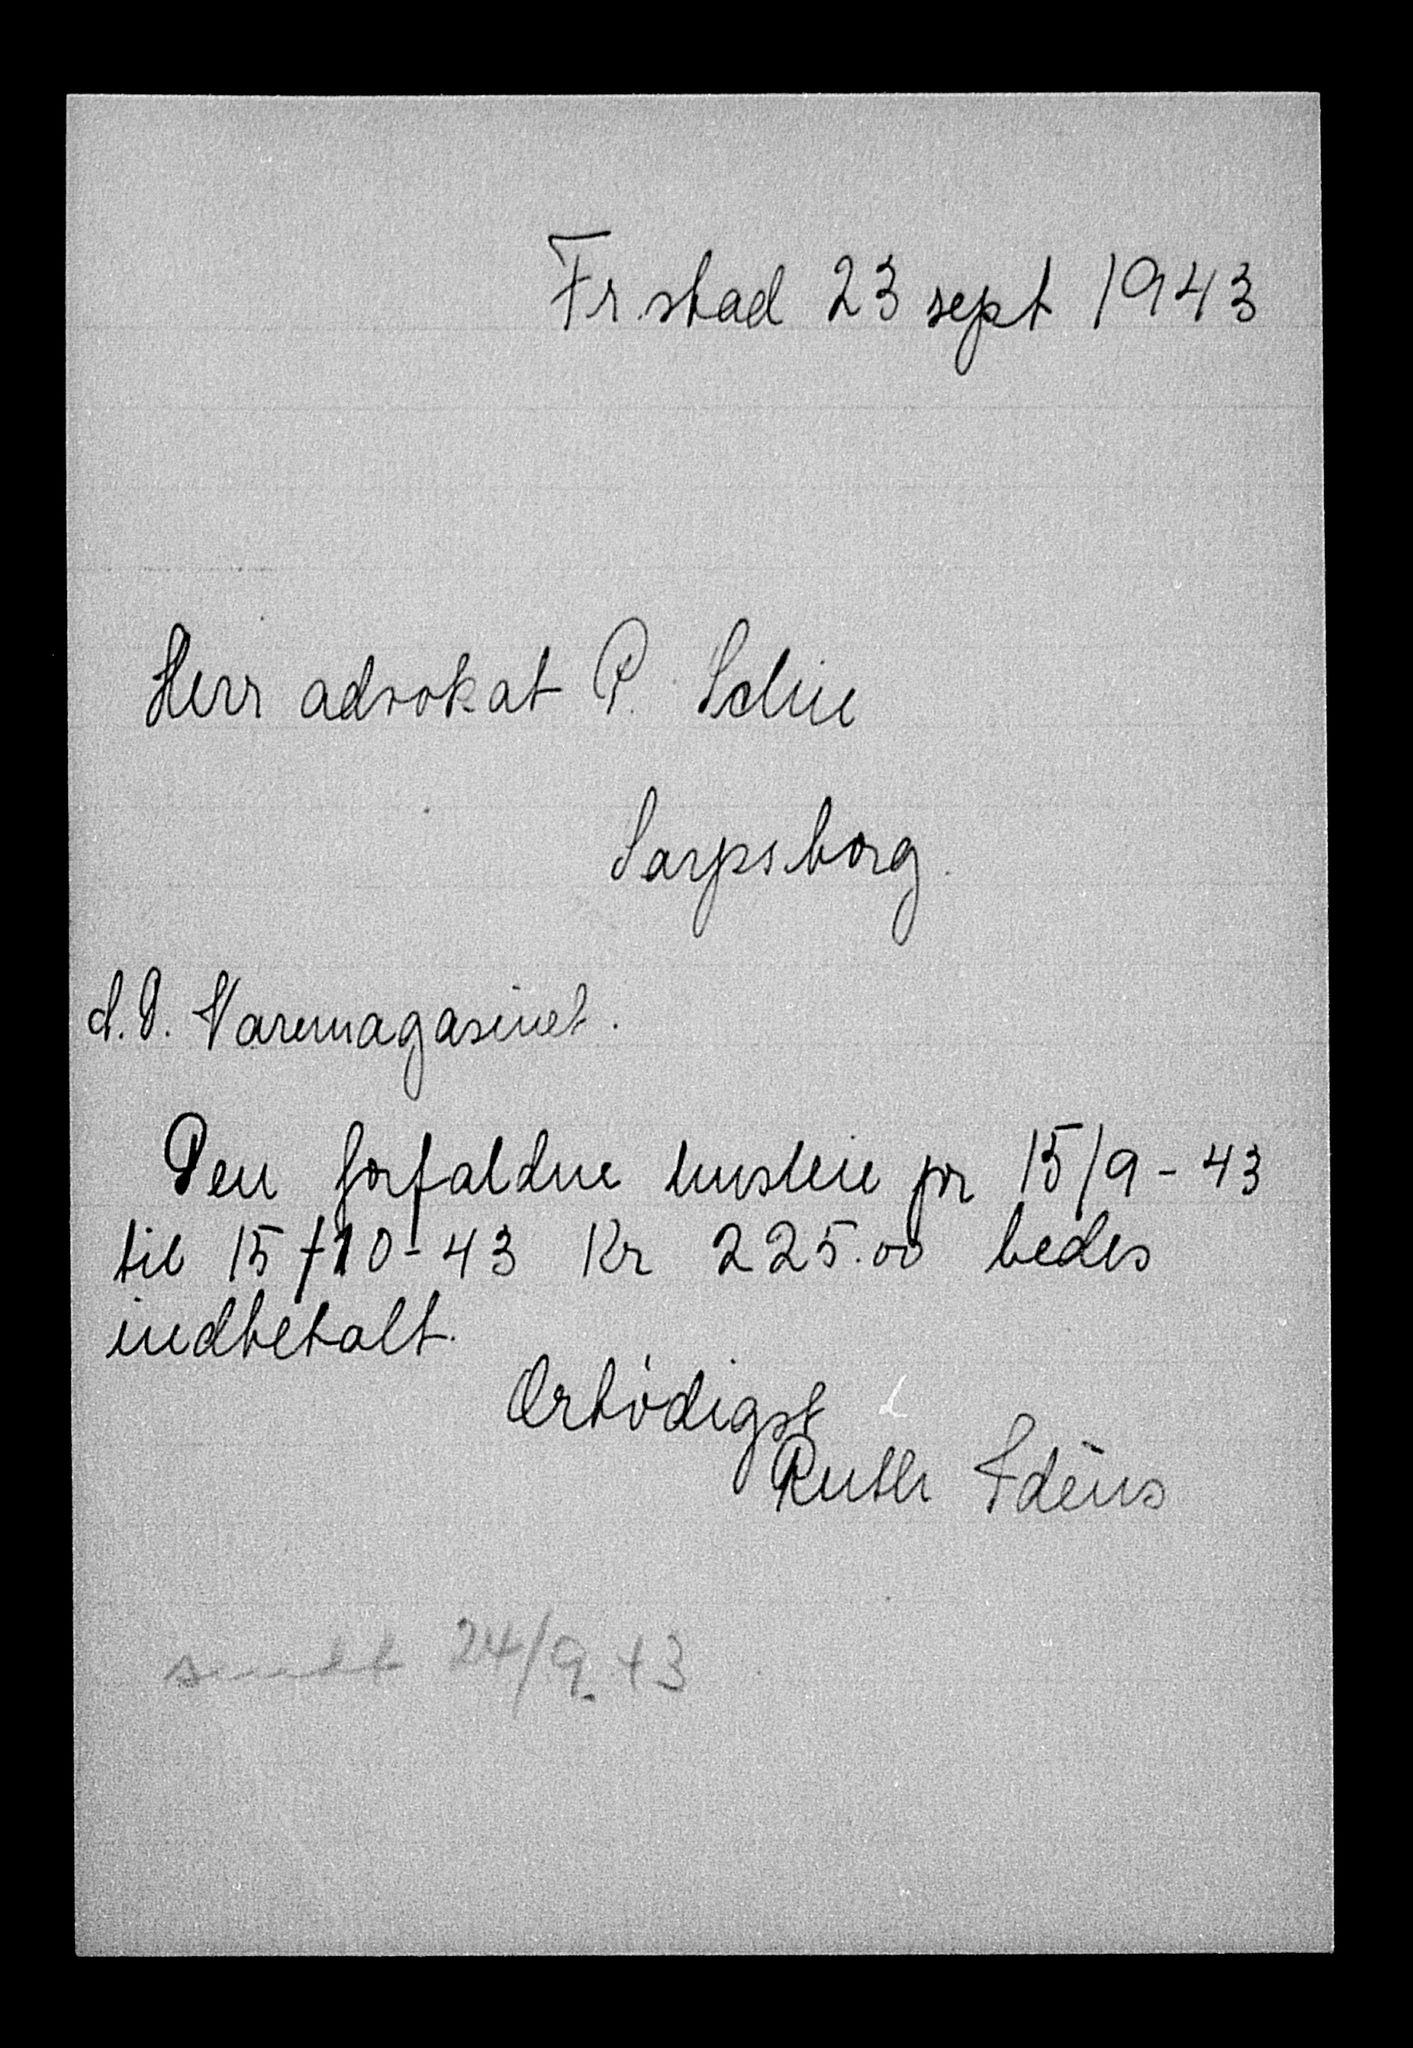 Fr.stad 23 sept 1943
Herr advokat P. Schie
Sarpsborg.
d.P. Varemagasinet.
Den forfaldne husleie pr 15/9-43
til 15/10-43 Kr 225.00 bedes
indbetalt.
Ærbödigst
Ruth
sendt 24/9.43